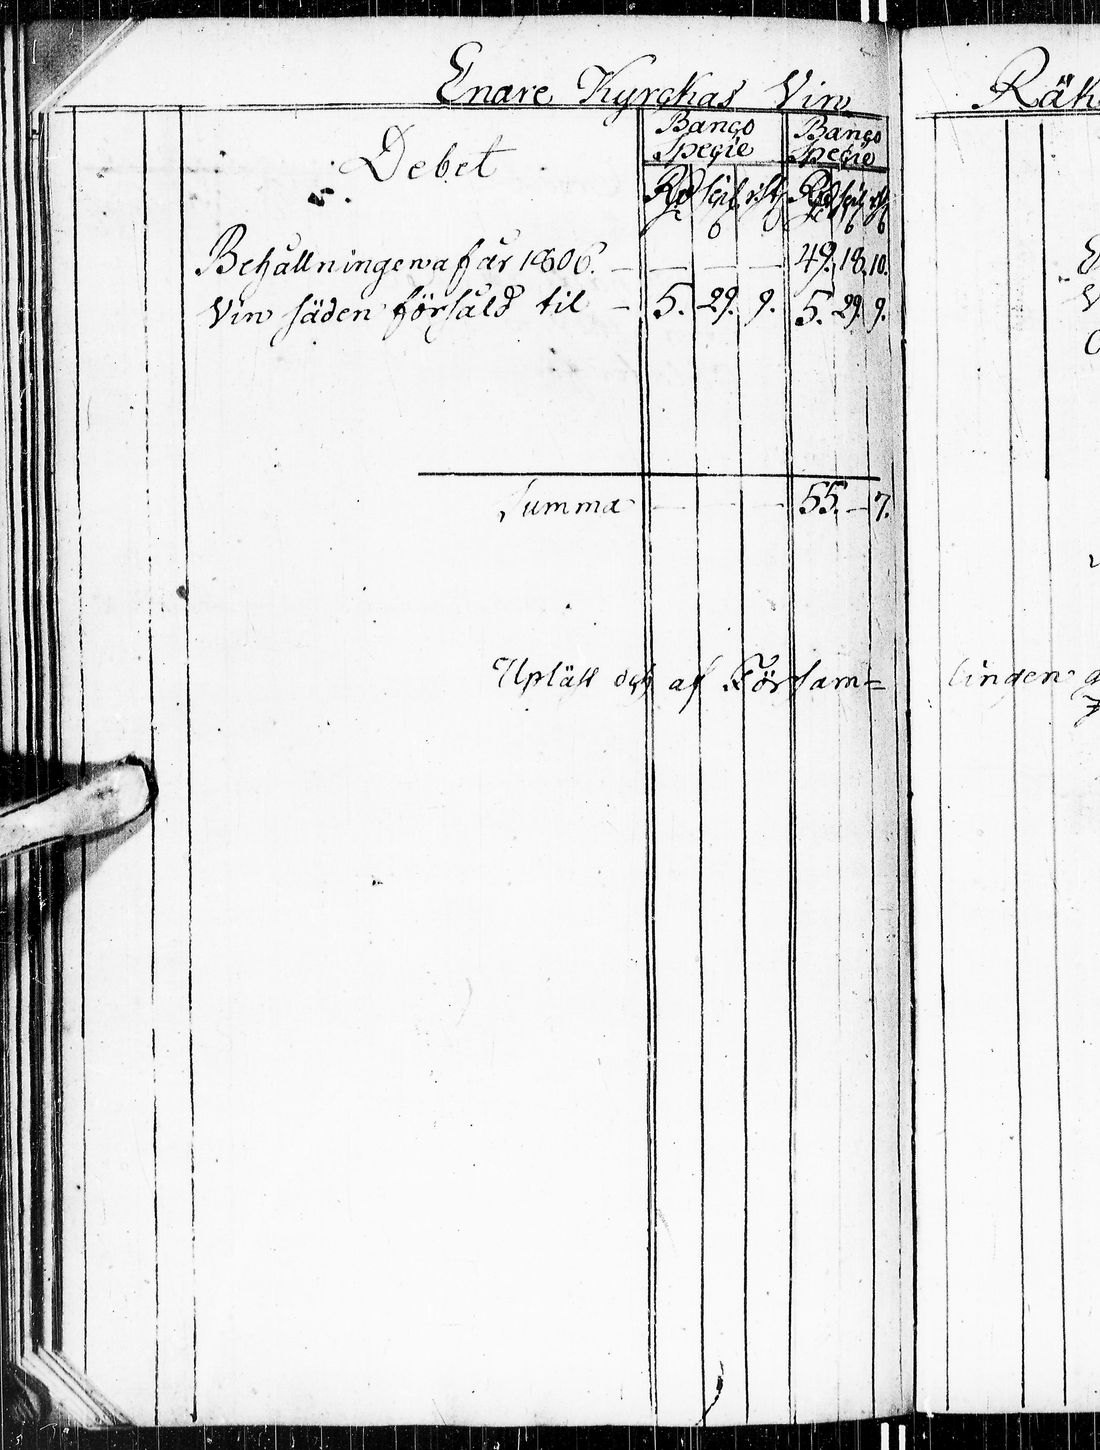 Enare Kyrckas Vin Räk
Debet
Banco Specie Banco Specie
Rd sk rst Rd sk rst
Behållningen ifrån år 1806. — — — — 49. 18. 10.
Vin säden försåld til — 5. 29. 9. 5. 29. 9.
Summa — — — 55. — 7.
Upläst och af Församlingen